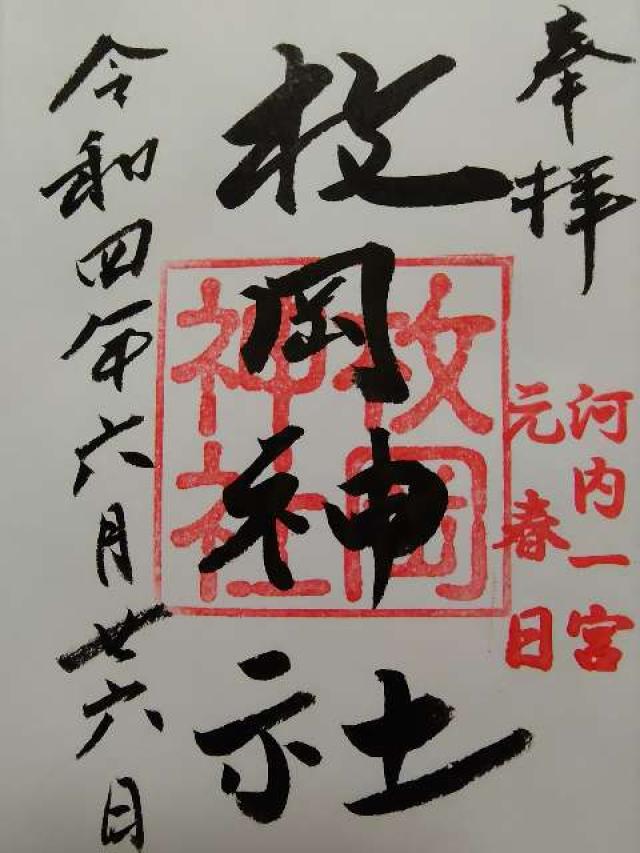 奉拝
河内一宮
元春日
枚岡神社
枚岡
神社
令和四年六月廿六日